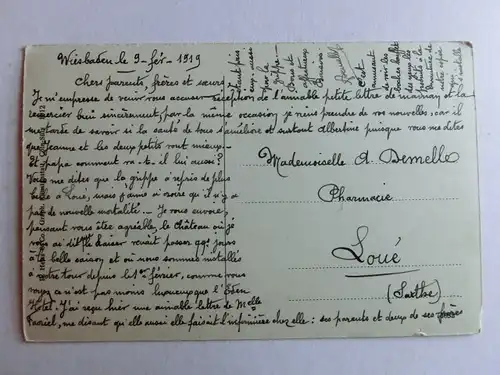 Wiesbaden le 9-fév-1919
Chers parents, frères et sœurs
Je m'empresse de venir vous accuser réception de l'aimable petite lettre de maman et la
remercier bien sincèrement, par la même occasion je viens prendre de vos nouvelles, car il
me tarde de savoir si la santé de tous s'améliore et surtout Albertine puisque vous me dites
que Jeanne et les deux petits vont mieux.
Et papa comment va-t-il lui aussi?
Vous me dites que la grippe a repris de plus
belle à Loué, mais j'aime à croire qu'il n'y a
pas de nouvelle mortalité. Je vous envoie,
pensant vous être agréable, le Château où je
vous ai dit Kaiser venait passer qq. jours
à la belle saison et où nous sommes installés
à notre tour depuis le 1er février, comme vous
voyez ça n'est pas moins luxueux que l'Eden
Hôtel. J'ai reçu hier une aimable lettre de Melle
me disant qu'elle aussi elle faisait l'infirmière chez elle: ses parents et deux de ses frères
Mademoiselle A. Demelle
Pharmacie
Loué
(Sarthe)
la
grippe
Bons et
affectueux
baisers
C'est
amusant
de voir les